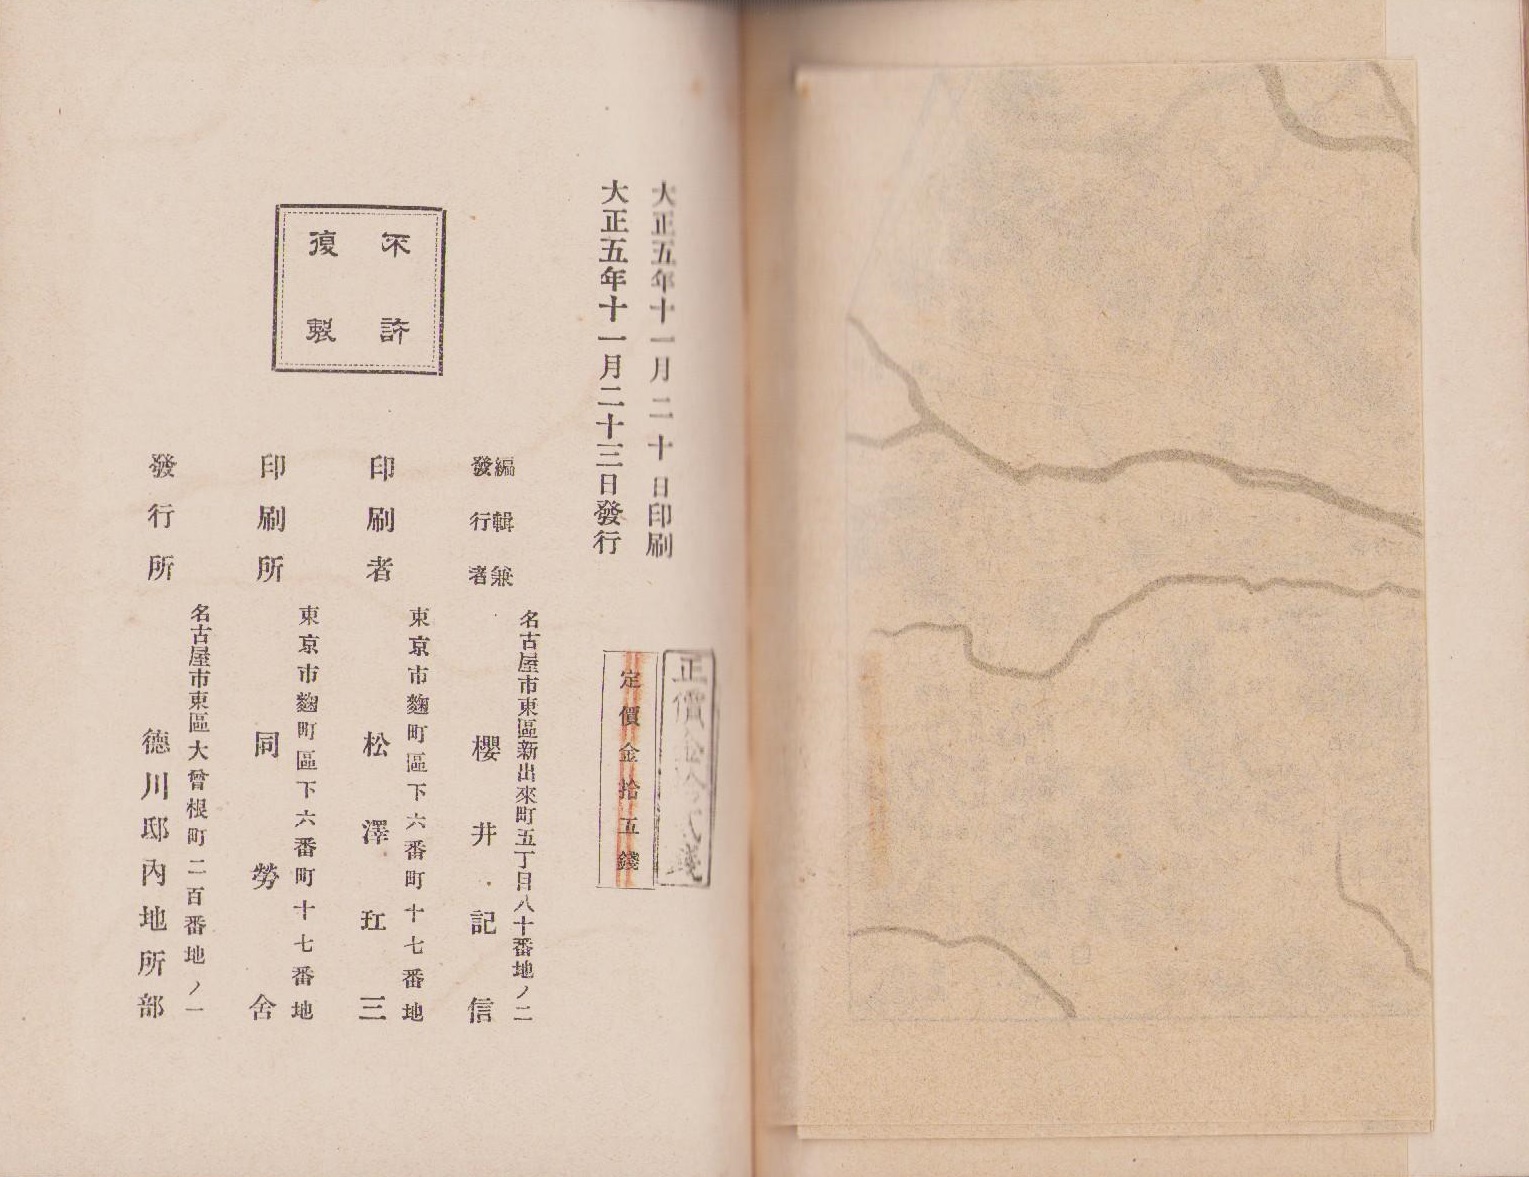 大正五年十一月二十日印刷
大正五年十一月二十三日發行
正價金拾弍錢
定價金拾五錢
不許
復製
編輯兼
發行者
名古屋市東區新出來町五丁目八十番地ノ二
櫻井記信
印刷者
東京市麴町區下六番町十七番地
松澤玒三
印刷所
東京市麴町區下六番町十七番地
同勞舍
發行所
名古屋市東區大曾根町二百番地ノ一
德川邸內地所部